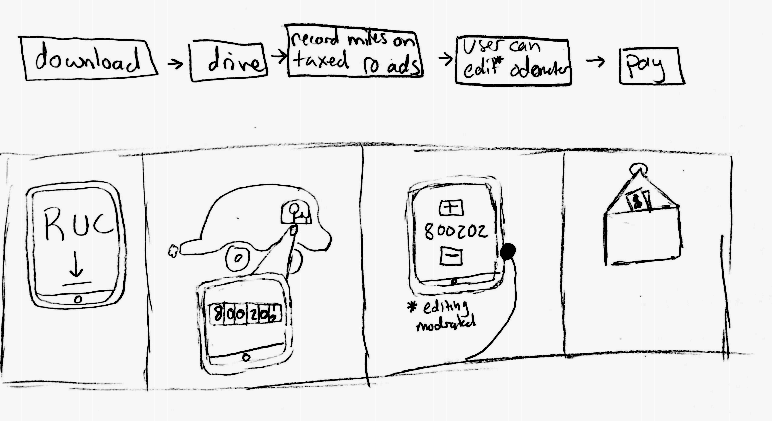 download
drive
record miles on
taxed roads
User can
edit* odometer
pay
RUC
80020
+
800202
-
* editing
modrated
$